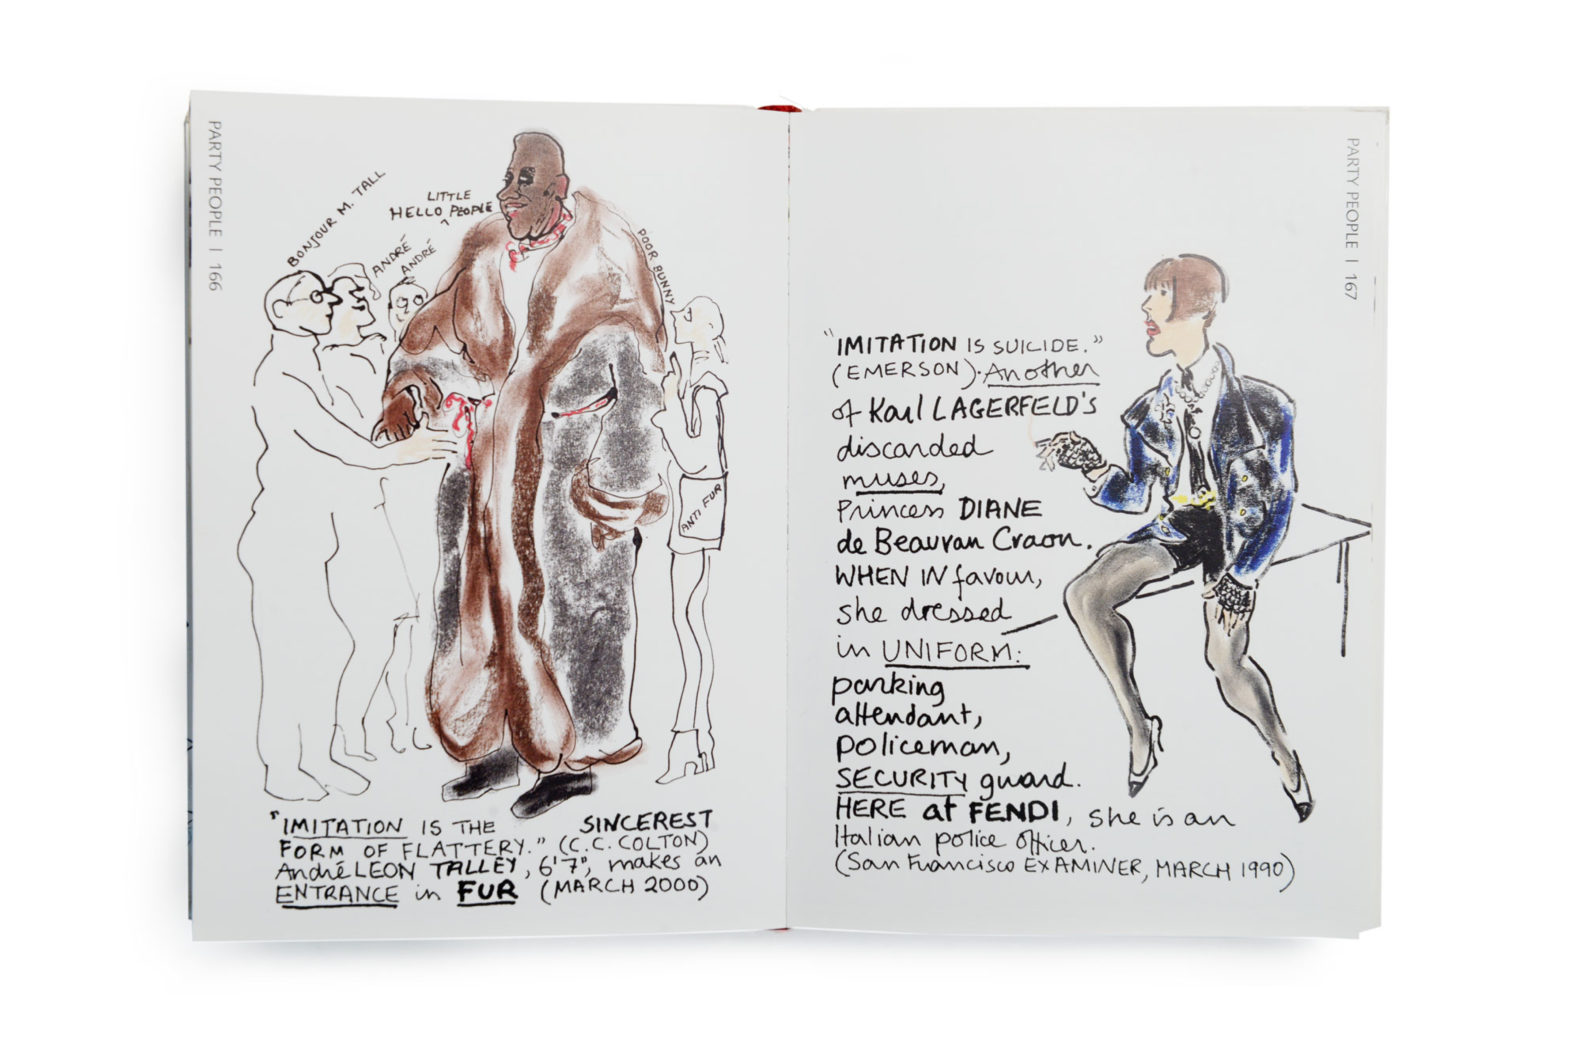 PARTY PEOPLE | 166
BONJOUR M. TALL
LITTLE
HELLO PEOPLE
ANDRÉ
ANDRÉ
POOR BUNNY
ANTI FUR
"IMITATION IS THE SINCEREST
FORM OF FLATTERY." (C.C. COLTON)
André LEON TALLEY, 6'7", makes an
ENTRANCE in FUR (MARCH 2000)
PARTY PEOPLE | 167
"IMITATION IS SUICIDE."
(EMERSON). Another
of Karl LAGERFELD'S
discarded
muses,
Princess DIANE
de Beauvau Craon.
WHEN IN favour,
she dressed
in UNIFORM:
parking
attendant,
policeman,
SECURITY guard.
HERE at FENDI, she is an
Italian police officer.
(San Francisco EXAMINER, MARCH 1990)